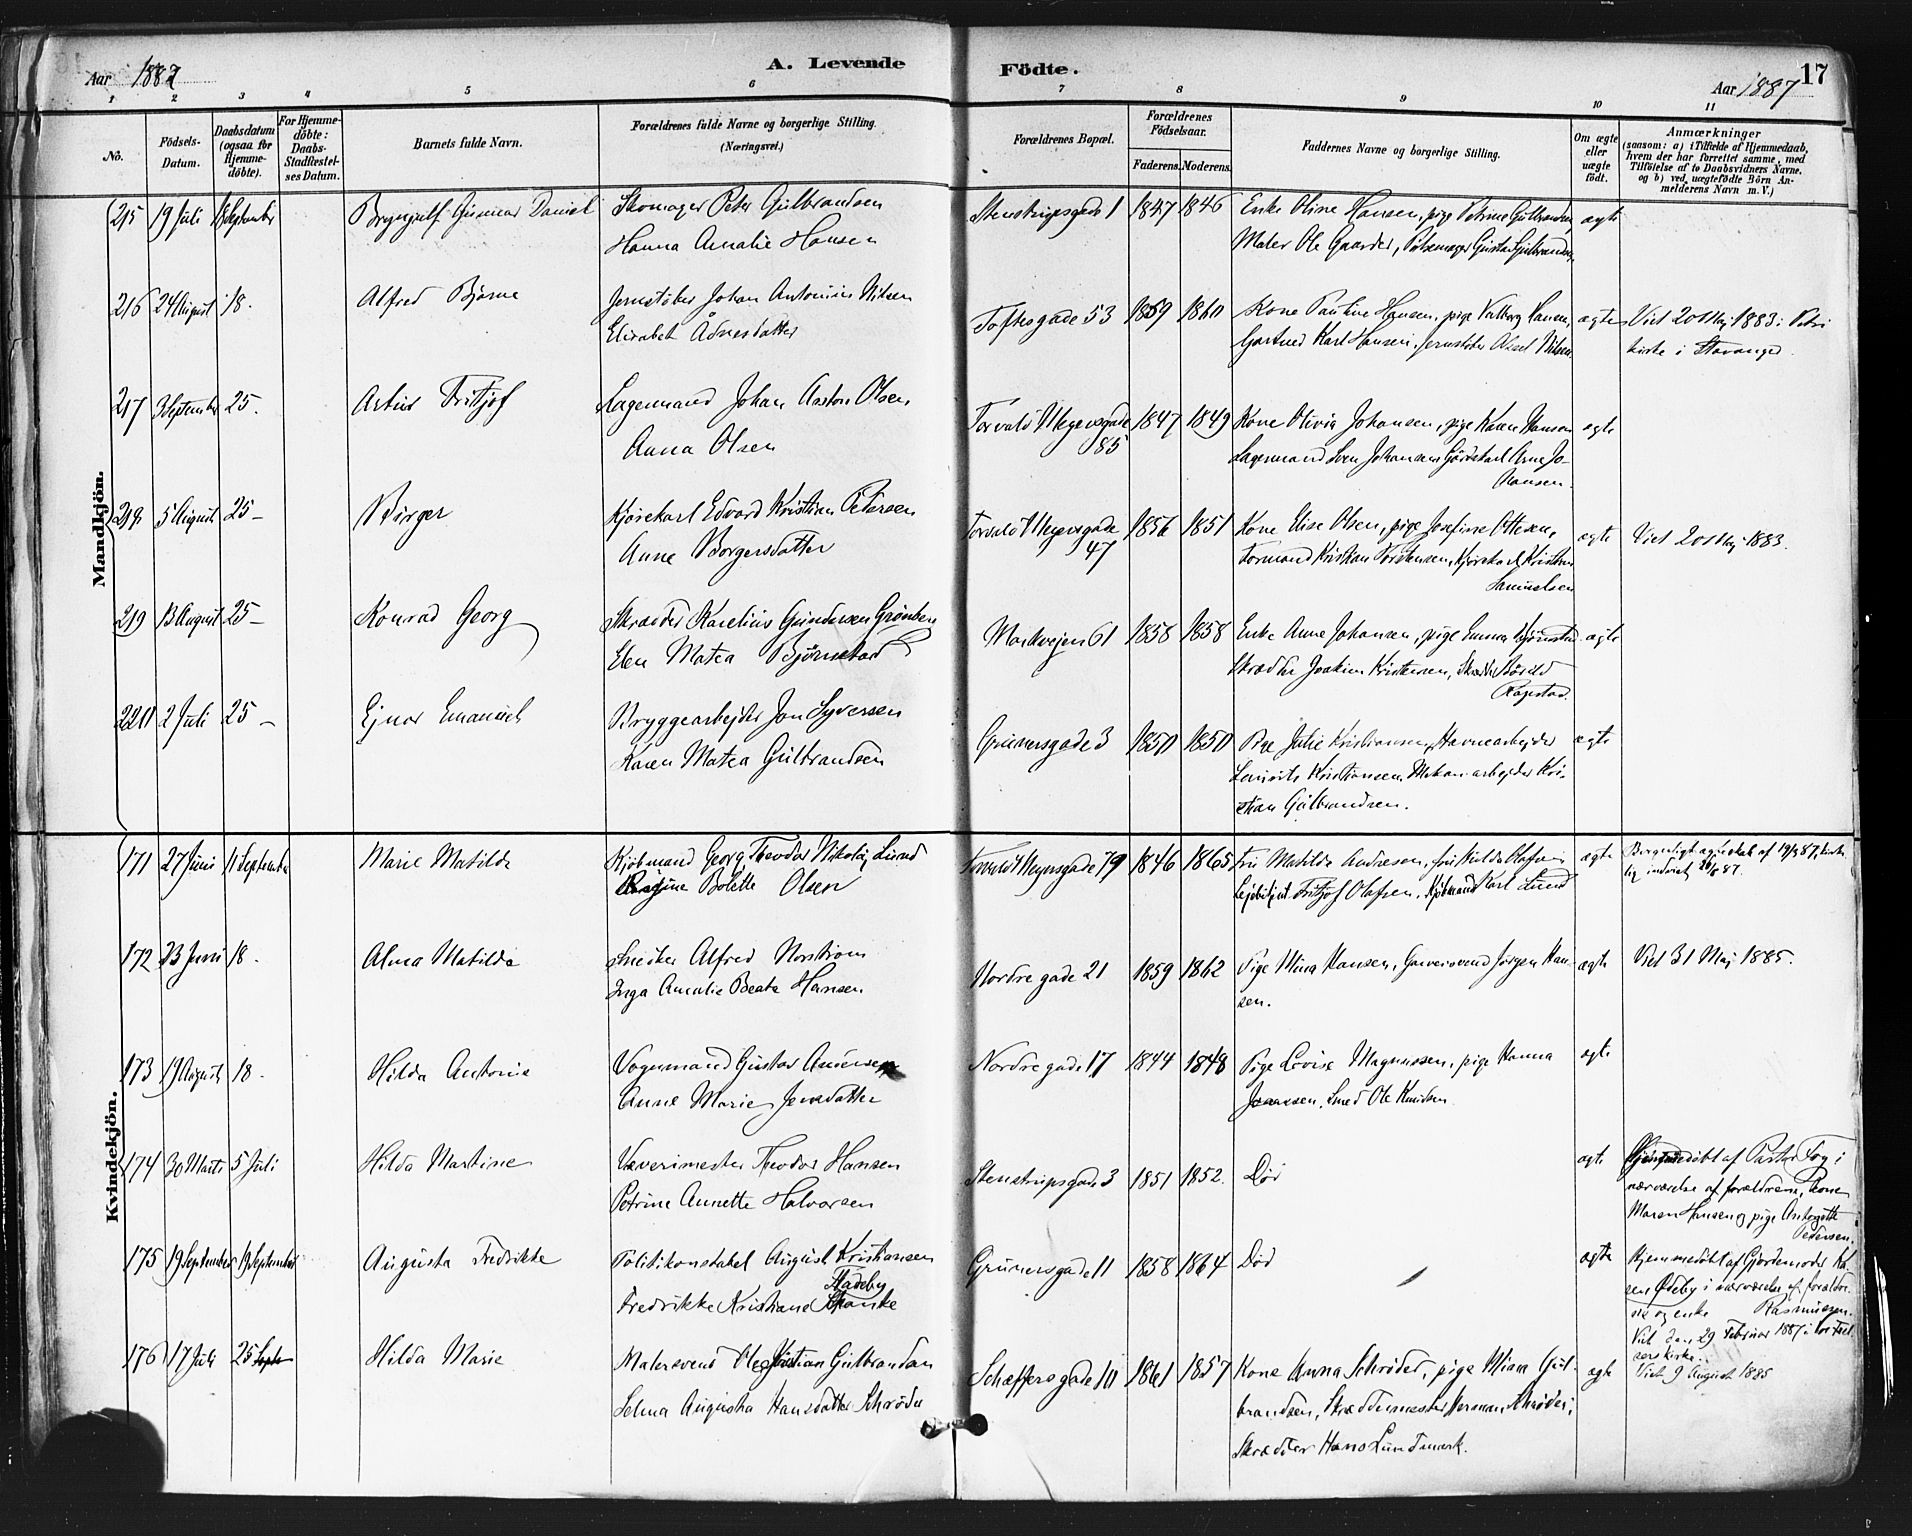 Aar 1887
A. Levende Födte.
Aar 1887
17
1 2 3 4 5 6 7 8 9 10 11
No.
Födsels-Datum.
Daabsdatum (ogsaa for Hjemme-döbte).
For Hjemme-döbte: Daabs-Stadfæstel-ses Datum.
Barnets fulde Navn.
Forældrenes fulde Navne og borgerlige Stilling. (Næringsvei.)
Forældrenes Bopæl.
Forældrenes Födselsaar.
Faderens. Moderens.
Faddernes Navne og borgerlige Stilling.
Om ægte eller uægte födt.
Anmærkninger (saasom: a) i Tilfælde af Hjemmedaab, hvem der har forrettet samme, med Tilföielse af to Daabsvidners Navne. og b) ved uægtefödte Börn An-melderens Navn m. V.)
Mandkjön.
215 19 Juli 18 September Brynjulf Gunnar Daniel Skomager Peter Gulbrandsen Stenstrupsgade 1 1847 1846 Enke Oline Hansen, pige Petrine Gulbrandsen ægte
Hanna Amalie Hansen Maler Ole Gaarder, Pølsemager Gustav Gulbrandsen
216 24 August 18. Alfred Bjarne Jernstøber Johan Antonius Nilsen Toftesgade 53 1859 1860 Kone Pauline Hansen, pige Valborg Hansen, ægte Viet 20 Maj 1883 i Petri
Elisabet Ådnesdatter Gartner Karl Hansen, Jernstøber Aksel Nilsen kirke i Stavanger.
217 3 September 25. Artur Fritjof Lagermand Johan Anton Olsen Torvald Meyersgade 1847 1849 Kone Olivia Johansen, pige Karen Hansen ægte
Anna Olsen 85 Lagermand Sven Johansen Gårdskarl Arne Jo-
hansen.
218 5 August 25 – Birger Kjørekarl Edvard Kristian Petersen Torvald Meyersgade 1856 1851 Kone Elise Olsen, pige Josefine Ottesen, ægte Viet 20 Maj 1883.
Anne Borgersdatter 47 Formand Kristian Torstensen, Kjørekarl Kristian
Samuelsen
219 13 August 25 – Konrad Georg Skrædder Karelius Gundersen Grønberg Markvejen 61 1858 1858 Enke Anne Johansen, pige Emma Bjørnstad ægte
Elen Matea Bjørnstad Skrædder Joakim Kristensen, Skrædder
220 2 Juli 25 – Ejnar Emanuel Bryggearbejder Jon Syversen Grünersgade 3 1850 1850 Pige Julie Kristiansen, Havnearbejder ægte
Karen Matea Gulbrandsen Kristiansen, Mekan. arbejder Kri-
stian Gulbrandsen.
Kvindekjön.
171 27 Juni 11 September Marie Matilde Kjøbmand Georg Theodor Nikolaj Lund Torvald Meyersgade 79 1846 1865 Fru Matilde Andresen, fru Hulda Olafsen ægte Borgerligt ægteskab af 19/3 87, kirke-
Regine Bolette Olsen Fritjof Olafsen, Kjøbmand Karl Lund lig indviet 26/6 87.
172 23 Juni 18. Alma Matilde Snedker Alfred Norstrøm Nordre gade 21 1859 1862 Pige Mina Hansen, Garversvend Jørgen Han- ægte Viet 31 Maj 1885.
Inga Amalie Beate Hansen sen.
173 19 August 18. Hilda Antonie Vognmand Gustav Andersen Nordre gade 17 1844 1848 Pige Lovise Magnussen, pige Hanna ægte
Anne Marie Jensdatter Joanssen, Smed Ole Knudsen.
174 30 Marts 5 Juli Hilda Martine Væverimester Theodor Hansen Stenstrupsgade 3 1851 1852. Død ægte Hjemmedøbt af Pastor Fog i
Petrine Annette Halvorsen nærværelse af forældrene, kone
Maren Hansen og pige Antonette
Pedersen.
175 19 September 19 September Augusta Fredrikke Politikonstabel August Kristiansen Grünersgade 11 1858 1864 Død ægte Hjemmedøbt af Gjordemoder Ka-
Stadeby
Fredrikke Kristiane Skanke ren Ødeby i nærværelse af foræld-
re og enke Rasmussen.
Viet den 29 Februar 1887 i
serskirke.
176 17 Juli 25 Sept Hilda Marie Malersvend Ole Kristian Gulbrandsen Schæffersgade 10 1861 1857 Kone Anna Schrøder, pige Mina Gul- ægte Viet 9 August 1885
Selma Augusta Hansdatter Schrøder brandsen, Skræddermester Herman Schrøder,
Skrædder Hans Lundmark.